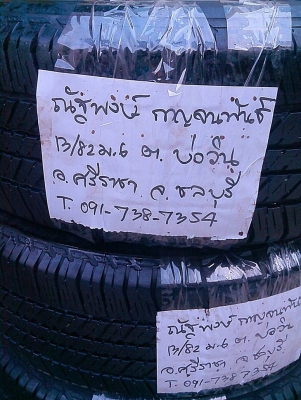 ณัฐพงษ์ กาญจนพันธ์
13/82 ม.6 ต. บ่อวิน
อ.ศรีราชา จ.ชลบุรี
T. 091-738-7354
ณัฐพงษ์ กาญจนพัน
13/82 ม.6 ต. บ่อวิน
อ.ศรีราชา จ.ชลบุรี
T. 091-738 7354